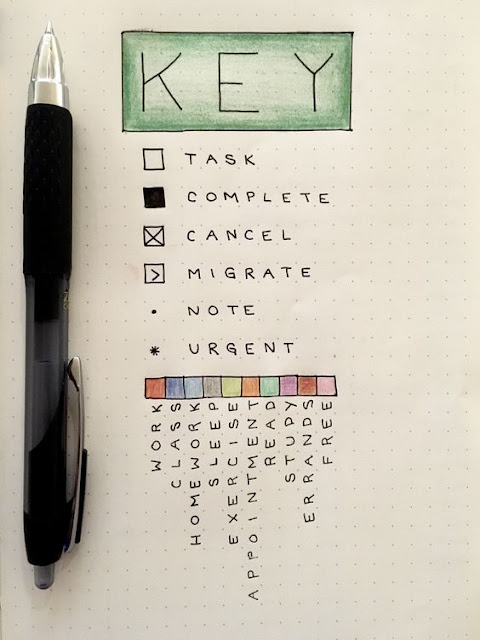 KEY
TASK
COMPLETE
CANCEL
MIGRATE
NOTE
URGENT
WORK
CLASS
HOMEWORK
SLEEP
EXERCISE
APPOINTMENT
READ
STUDY
ERRANDS
FREE